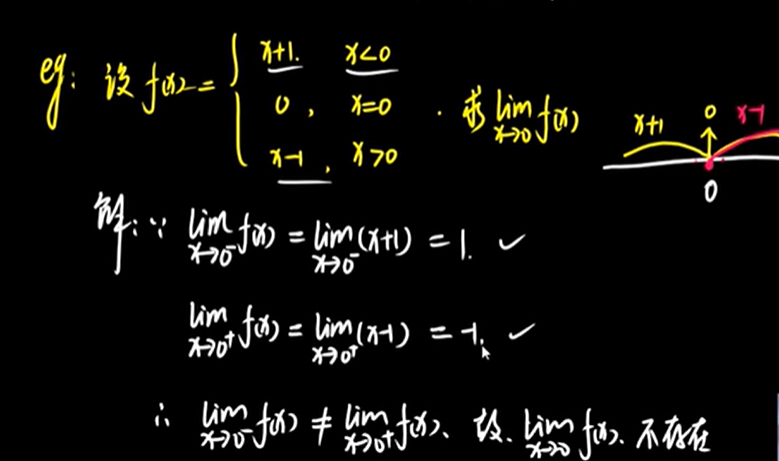 eg: 设 f(x) = { x+1. x<0
0 , x=0 . 求 lim x→0 f(x)
x-1 , x>0
x+1 0 x-1
0
解: ∵ lim x→0⁻ f(x) = lim x→0⁻ (x+1) = 1. ✓
lim x→0⁺ f(x) = lim x→0⁺ (x-1) = -1. ✓
∴ lim x→0⁻ f(x) ≠ lim x→0⁺ f(x)、故、lim x→0 f(x)、不存在